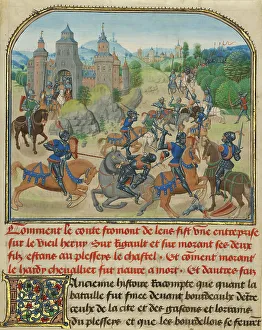 Comment le conte fromont de lens fist vne entreprise
sur le vieil heruy sur rigault et sur morant ses deux
filz estans au plesseys le chastel. Et coment morant
le hardy chevallier fut naure a mort. Et daultres fais
Ancienne histoire racompte que quant la
bataille fut finee devant bourdeaulx dentre
ceulx de la cite et des gascons et lorrains
du plesseys et que les bourdellois se furent